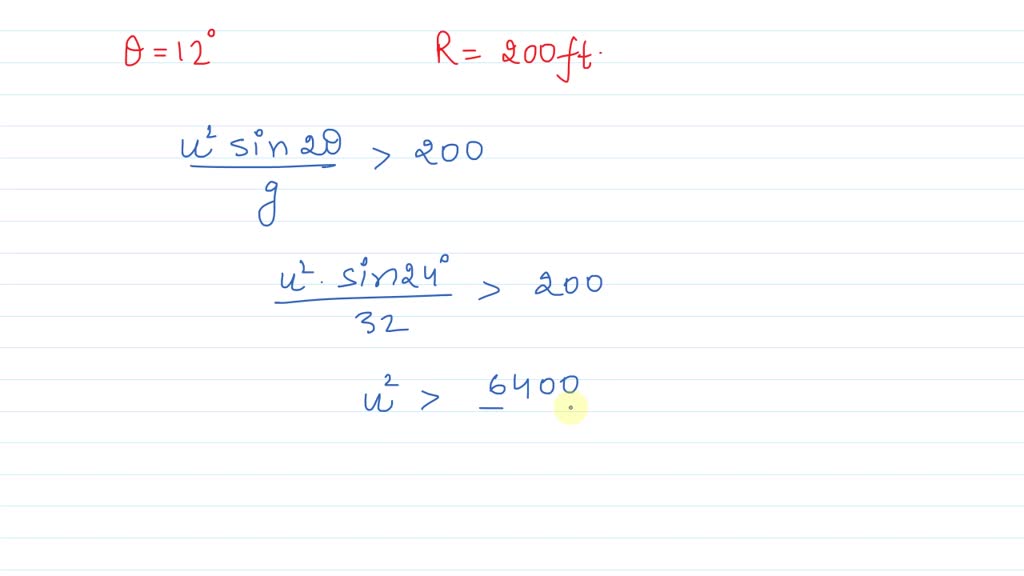 θ = 12° R = 200ft.
u² sin 2θ / g > 200
u² · sin 24° / 32 > 200
u² > 6400